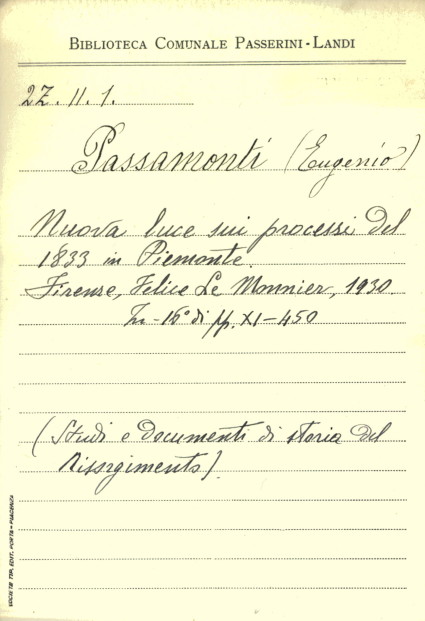 BIBLIOTECA COMUNALE PASSERINI-LANDI
2Z. II. 1.
Passamonti (Eugenio)
Nuova luce sui processi del
1833 in Piemonte.
Firenze, Felice Le Monnier, 1930.
In-16° di pp. XI-450
(Studi e documenti di storia del
Risorgimento).
SOCIETÀ TIP. EDIT. PORTA - PIACENZA